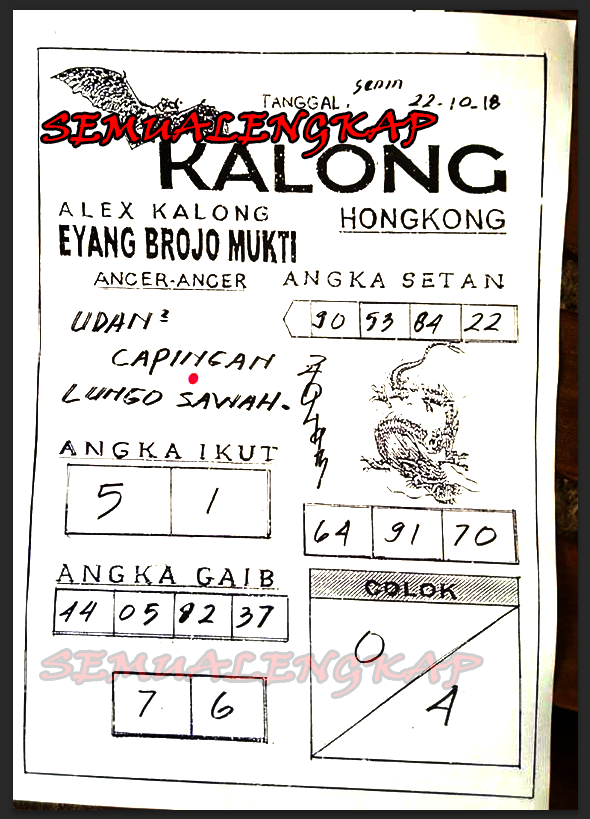 TANGGAL, Senin 22-10-18
SEMUALENGKAP
KALONG
ALEX KALONG
HONGKONG
EYANG BROJO MUKTI
ANCER-ANCER
ANGKA SETAN
UDAN²
90 53 84 22
CAPINGAN
LUNGO SAWAH.
ANGKA IKUT
5 1
64 91 70
ANGKA GAIB
COLOK
44 05 82 37
0
SEMUALENGKAP
7 6
4